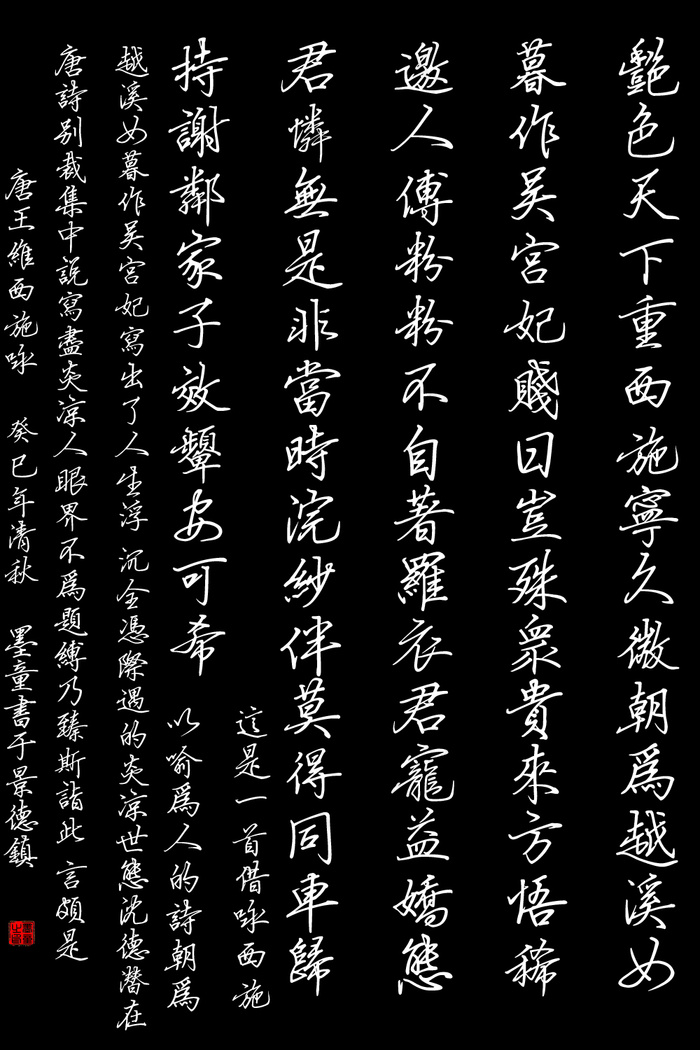 艷色天下重西施寧久微朝爲越溪女
暮作吴宮妃賤日豈殊衆貴來方悟稀
邀人傅粉粉不自著羅衣君寵益嬌態
君憐無是非當時浣紗伴莫得同車歸
持謝鄰家子效顰安可希
這是一首借咏西施
以喻爲人的詩朝爲
越溪女暮作吴宮妃寫出了人生浮沉全憑際遇的炎涼世態沈德潛在
唐詩别裁集中説寫盡炎涼人眼界不爲題縛乃臻斯詣此言頗是
唐王維西施咏 癸巳年清秋 墨童書于景德鎮